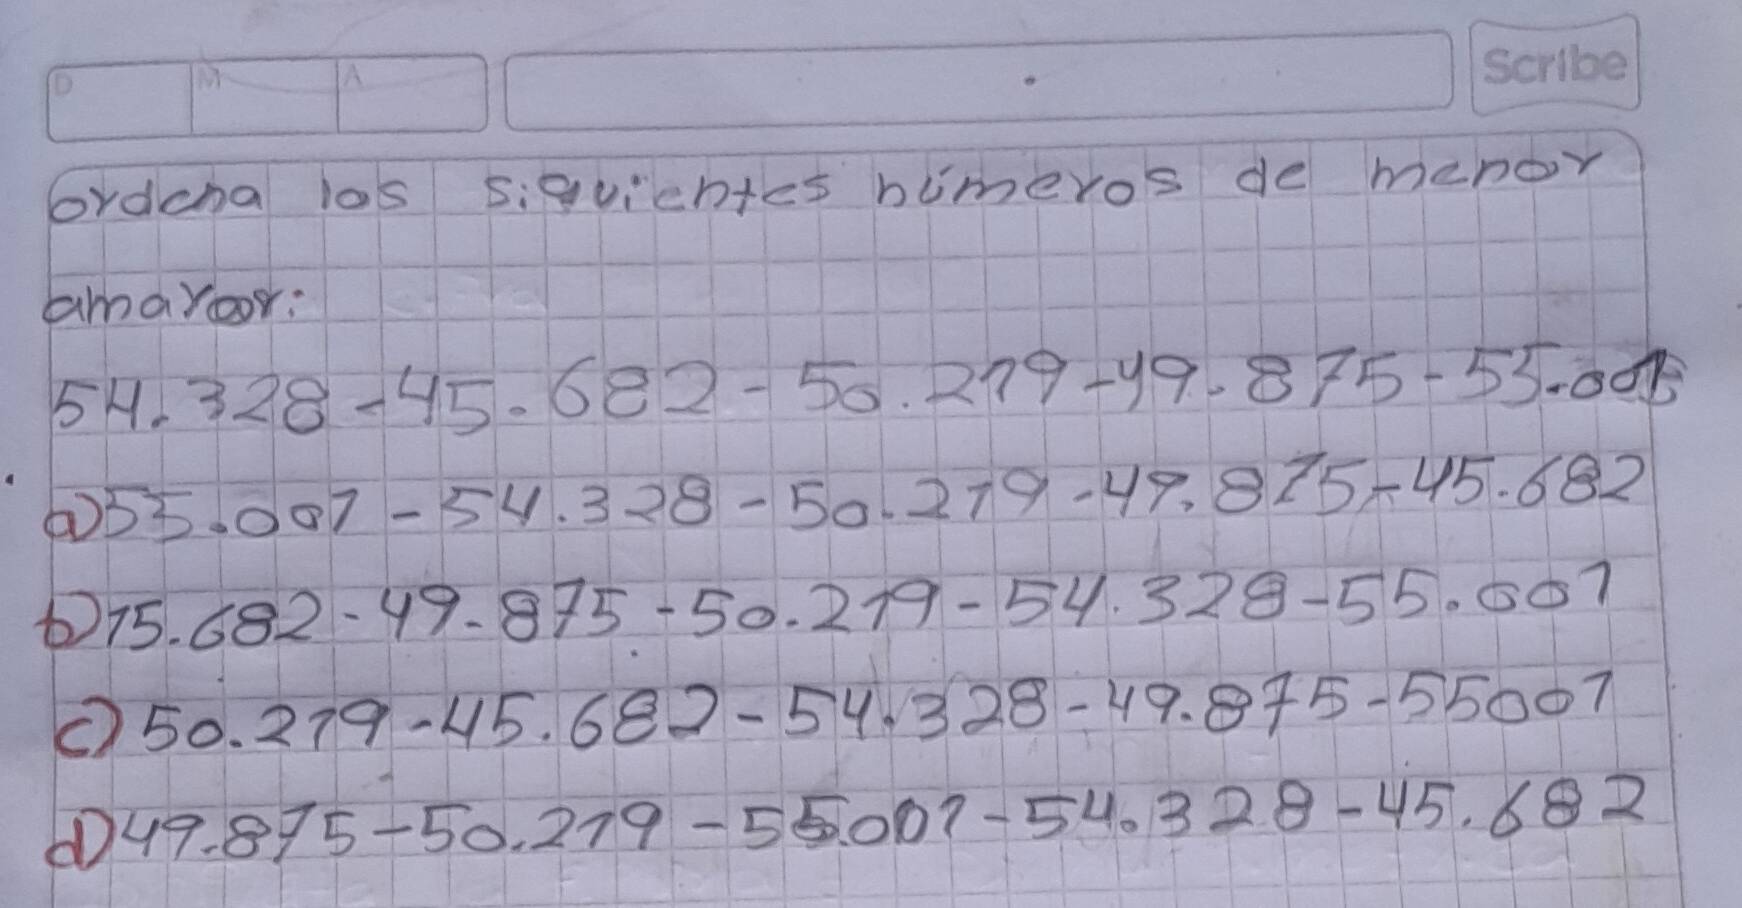 D M A Scribe
ordena los siguientes números de menor
amayoor:
54.328-45.682-50.219-49.875-55.001
a) 55.001-54.328-50.219-49.875-45.682
b) 15.682-49.875-50.219-54.328-55.001
c) 50.219-45.682-54.328-49.875-55001
d) 49.875-50.219-55.001-54.328-45.682